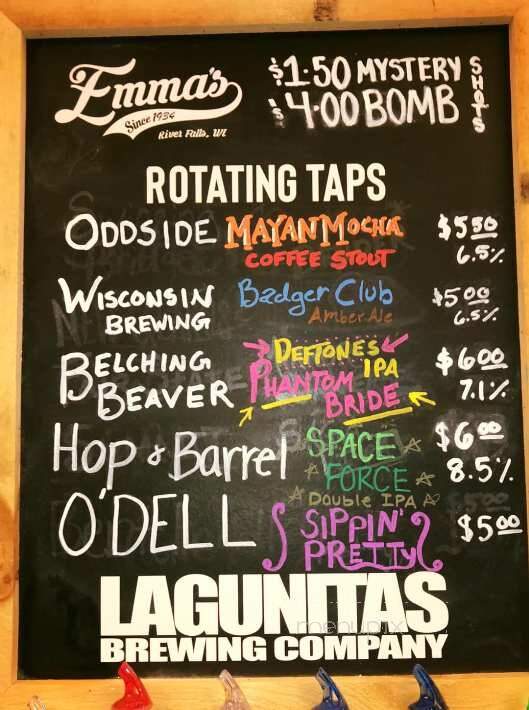 Emma's
Since 1934
River Falls, WI
$1.50 MYSTERY
$4.00 BOMB
SHOTS
ROTATING TAPS
ODDSIDE MAYAN MOCHA $5.50
COFFEE STOUT 6.5%
WISCONSIN Badger Club $5.00
BREWING Amber Ale 6.5%
BELCHING DEFTONES $6.00
IPA
BEAVER PHANTOM 7.1%
BRIDE
Hop & Barrel SPACE $6.00
FORCE 8.5%
Double IPA
O'DELL SIPPIN' $5.00
PRETTY
LAGUNITAS
BREWING COMPANY
menupix